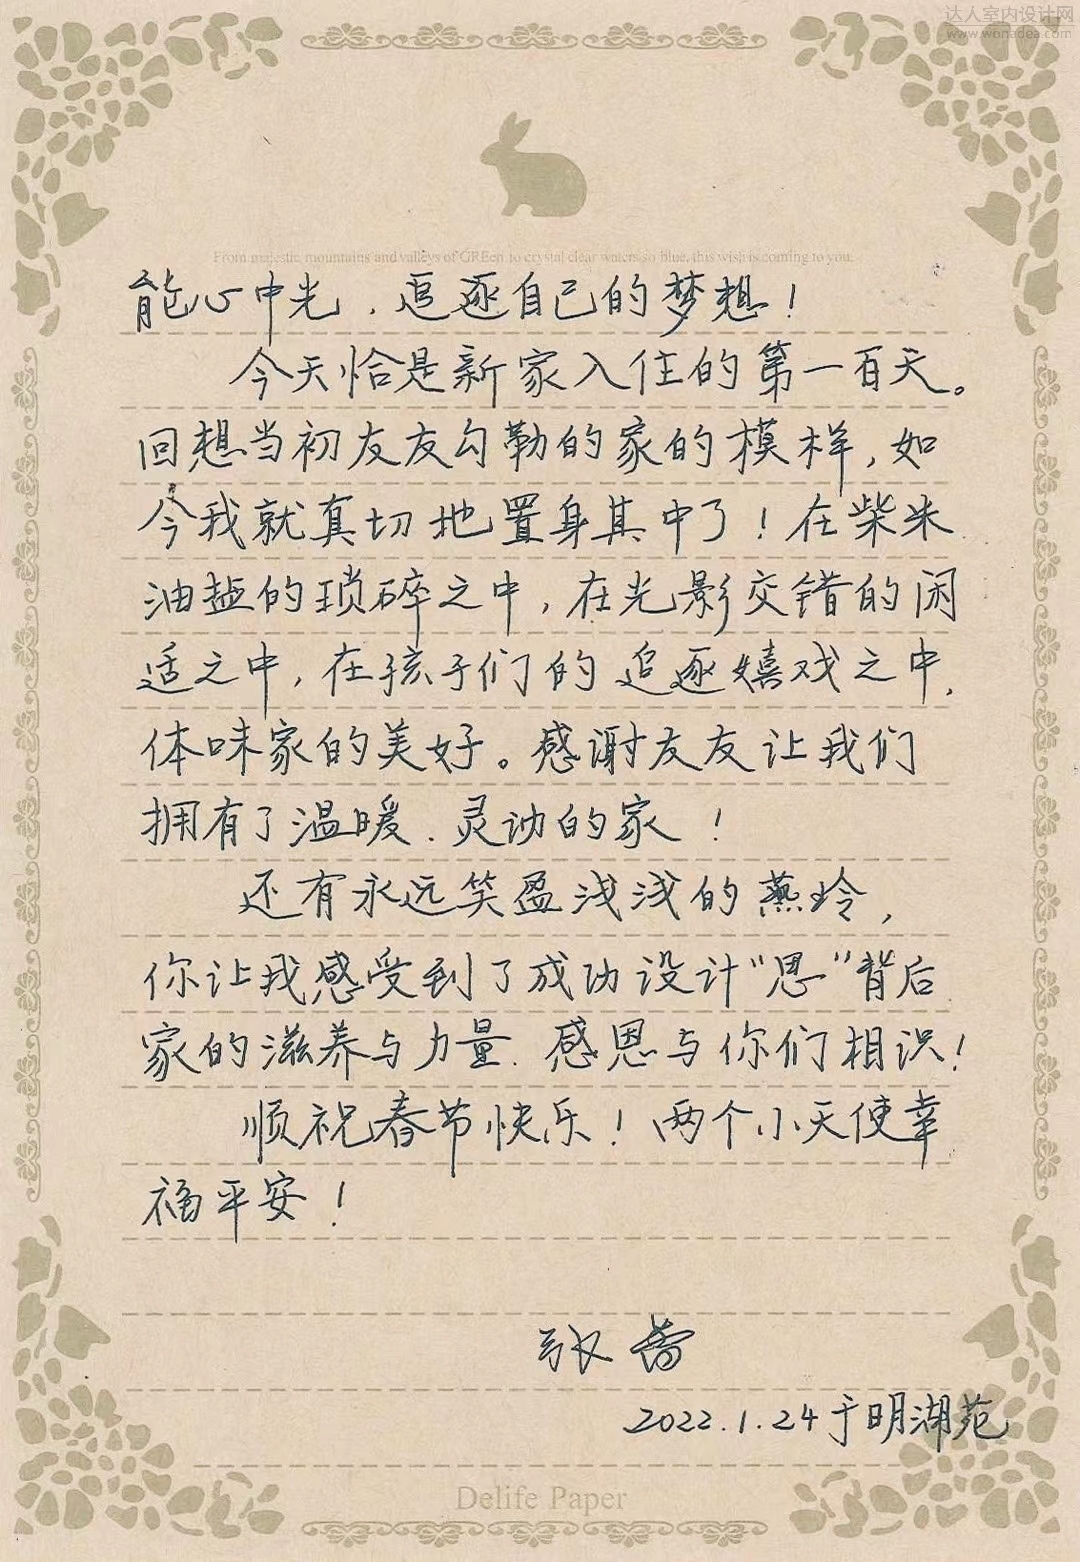 达人室内设计网
www.wonadea.com
From majestic, mountains and valleys of GREen to crystal clear waters so blue, this wish is coming to you.
能心中光，追逐自己的梦想！
今天恰是新家入住的第一百天。
回想当初友友勾勒的家的模样，如
今我就真切地置身其中了！在柴米
油盐的琐碎之中，在光影交错的闲
适之中，在孩子们的追逐嬉戏之中，
体味家的美好。感谢友友让我们
拥有了温暖、灵动的家！
还有永远笑盈浅浅的燕玲，
你让我感受到了成功设计“思”背后
家的滋养与力量。感恩与你们相识！
顺祝春节快乐！两个小天使幸
福平安！
张
2022.1.24于明湖苑
Delife Paper